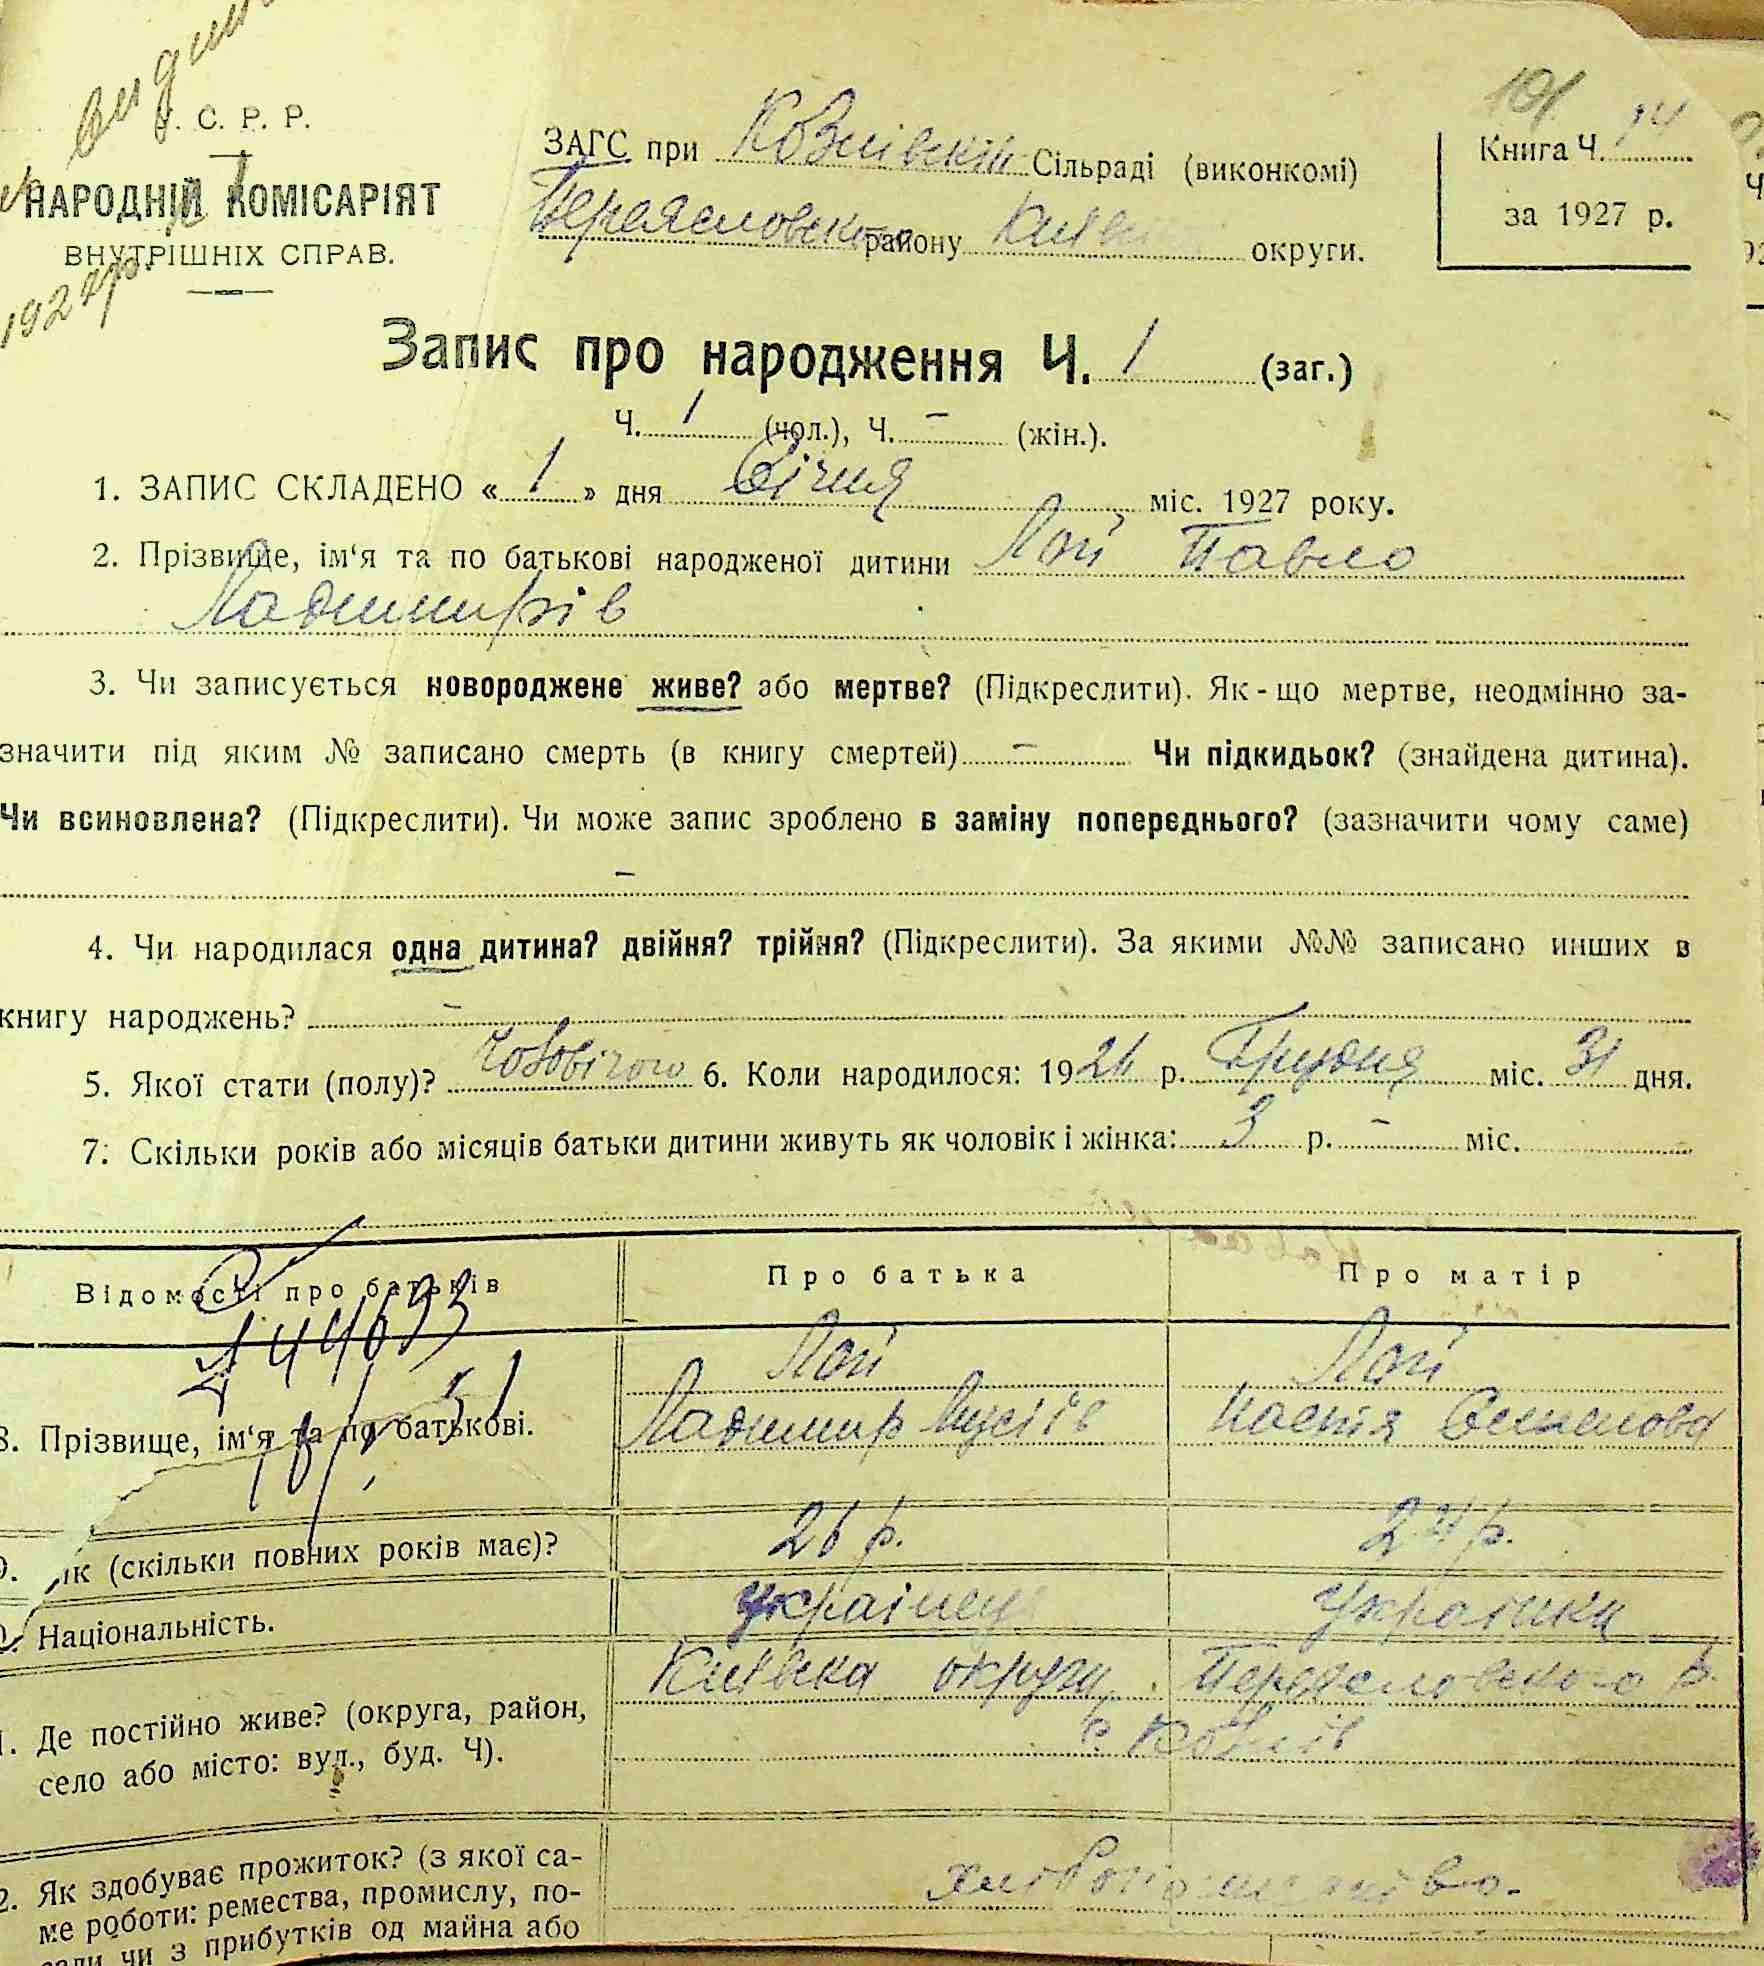 С. Р. Р.
НАРОДНІЙ КОМІСАРІЯТ
ВНУТРІШНІХ СПРАВ.
ЗАГС при Ковшівській Сільраді (виконкомі)
Переяславського району Київ округи.
101
Книга Ч. 14
за 1927 р.
Запис про народження Ч. 1 (заг.)
Ч. 1 (чол.), Ч. – (жін.).
1. ЗАПИС СКЛАДЕНО « 1 » дня Січня міс. 1927 року.
2. Прізвище, ім‘я та по батькові народженої дитини Лой Павло
Ладимирів
3. Чи записується новороджене живе? або мертве? (Підкреслити). Як - що мертве, неодмінно за-
значити під яким № записано смерть (в книгу смертей) – Чи підкидьок? (знайдена дитина).
Чи всиновлена? (Підкреслити). Чи може запис зроблено в заміну попереднього? (зазначити чому саме)
–
4. Чи народилася одна дитина? двійня? трійня? (Підкреслити). За якими №№ записано инших в
книгу народжень? –
5. Якої стати (полу)? Чоловічого 6. Коли народилося: 1926 р. Грудня міс. 31 дня.
7. Скільки років або місяців батьки дитини живуть як чоловік і жінка: 3 р. – міс.
Відомості про батьків Про батька Про матір
8. Прізвище, ім‘я та по батькові. Лой Лой
Ладимир Мусіїв Настя
(скільки повних років має)? 26 р. 24 р.
Національність. українец Українка
Де постійно живе? (округа, район, Київска округи Переяславського р.
село або місто: вул., буд. Ч). с.
Як здобуває прожиток? (з якої са-
ме роботи: ремества, промислу, по-
чи з прибутків од майна або